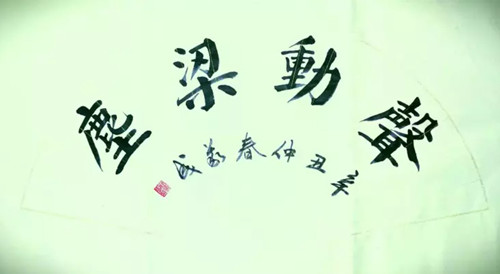 聲動梁塵
辛丑仲春